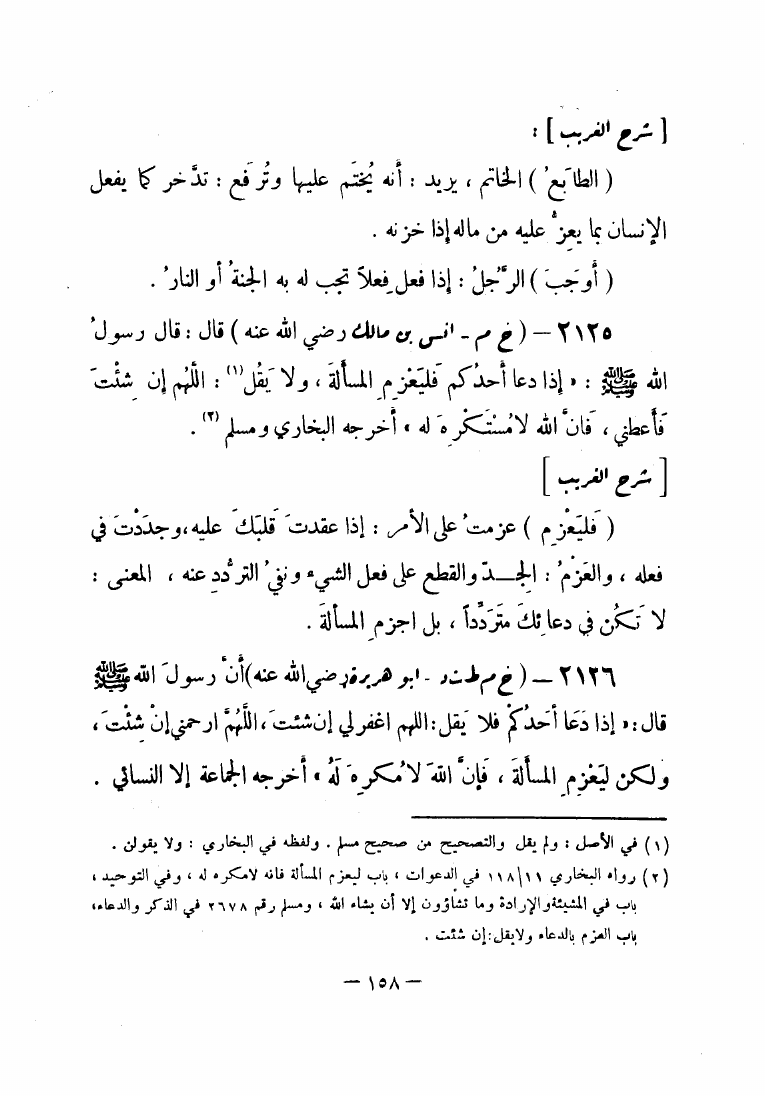 [ شرح الغريب ] :
( الطابَعُ ) الخاتم ، يريد : أنه يُختَم عليها وتُرفَع : تدَّخر كما يفعل
الإنسان بما يعِزُّ عليه من ماله إذا خزنه .
( أوجَبَ ) الرَّجلُ : إذا فعل فِعلاً تجب له به الجنةُ أو النارُ .
٢١٢٥ – ( خ م - أنس بن مالك رضي الله عنه ) قال : قال رسولُ
الله ﷺ : « إذا دعا أحدُكم فَليَعْزِمِ المسألةَ ، ولا يَقُل(١) : اللَّهُم إن شِئْتَ
فَأعطني ، فَإنَّ الله لا مُسْتَكْرِهَ له » أخرجه البخاري ومسلم (٢) .
[ شرح الغريب ]
( فَليَعْزِم ) عزمتُ على الأمر : إذا عقدتَ قَلبَكَ عليه ، وجدَدْتَ في
فعله ، والعَزْمُ : الجِدّ والقطع على فعل الشيء ونفيُ التردُّدِ عنه ، المعنى :
لا تَكُن في دعائِكَ مترَدِّداً ، بل اجزم المسألةَ .
٢١٢٦ – ( خ م ط ت د - أبو هريرة رضي الله عنه ) أنَّ رسولَ الله ﷺ
قال : « إذا دَعَا أحَدُكُمْ فلا يَقل : اللهم اغفر لي إن شئتَ ، اللَّهُمَّ ارحمني إنْ شِئْتَ ،
ولكن لِيَعْزِمِ المسألةَ ، فَإنَّ اللهَ لا مُكرِهَ لَهُ » أخرجه الجماعة إلا النسائي .
(١) في الأصل : ولم يقل والتصحيح من صحيح مسلم . ولفظه في البخاري : ولا يقولن .
(٢) رواه البخاري ١١/١١٨ في الدعوات ، باب ليعزم المسألة فانه لامكره له ، وفي التوحيد ،
باب في المشيئة والإرادة وما تشاؤون إلا أن يشاء الله ، ومسلم رقم ٢٦٧٨ في الذكر والدعاء ،
باب العزم بالدعاء ولايقل : إن شئت .
– ١٥٨ –